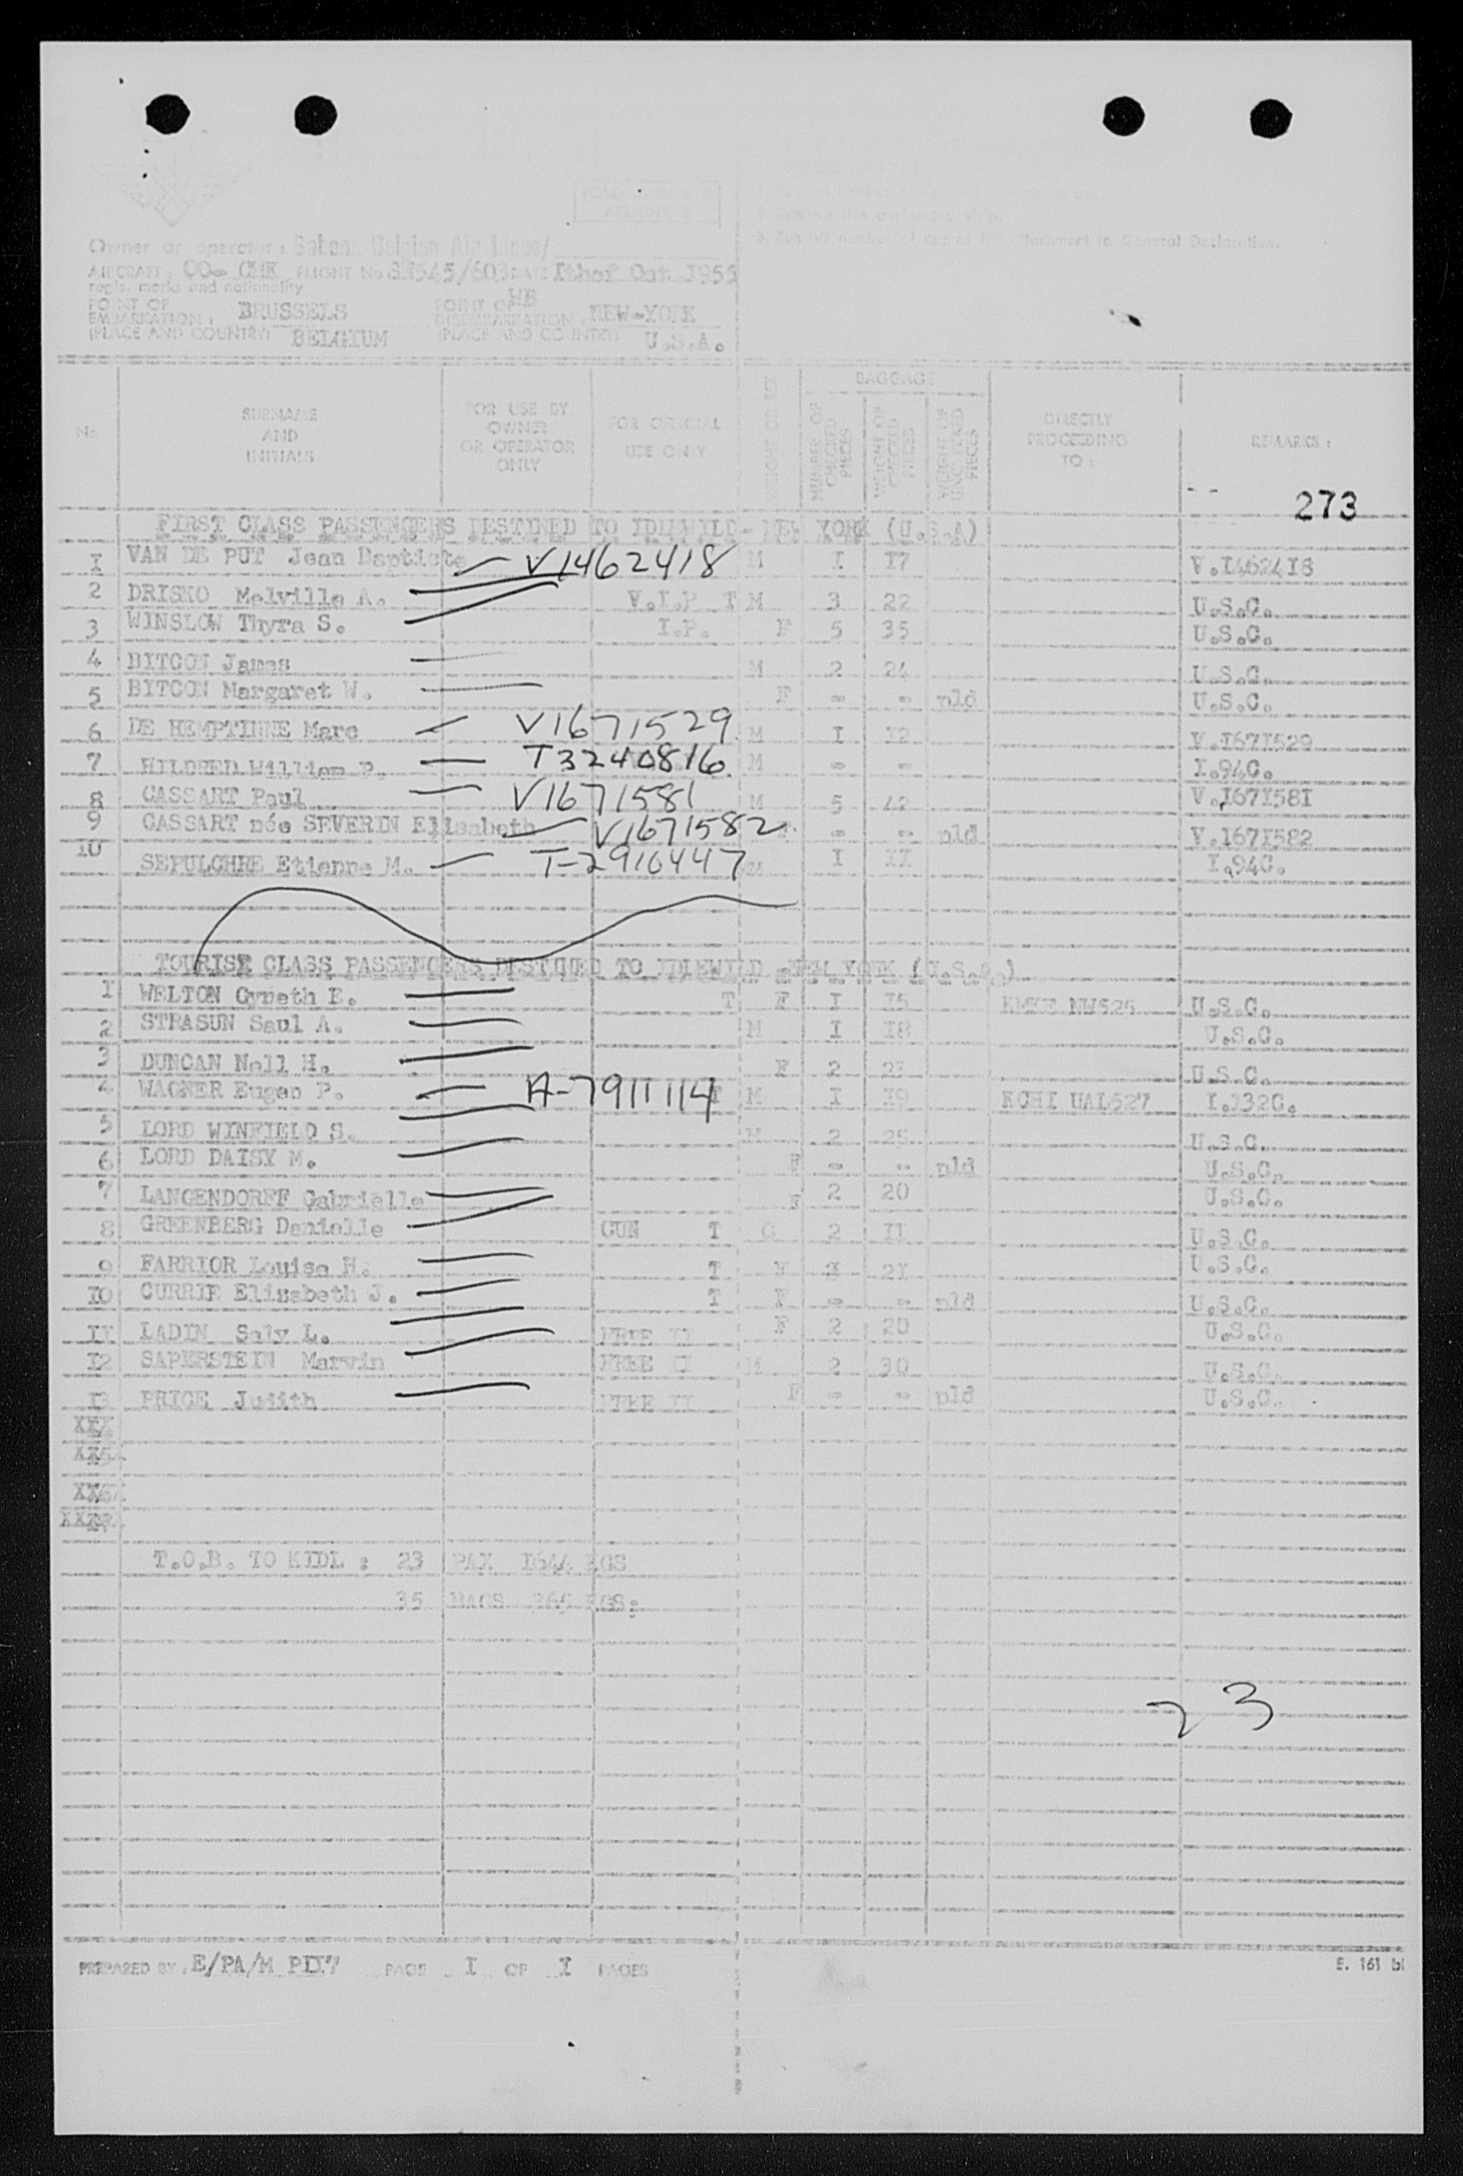 Owner or operator : Sabena Belgian Air Lines/
AIRCRAFT : OO- FLIGHT No SN545/603 DATE Oct 1955
regis. marks and nationality
POINT OF EMBARKATION : BRUSSELS POINT OF NEW-YORK
(PLACE AND COUNTRY) BELGIUM (PLACE AND COUNTRY) U.S.A.
BAGGAGE
No SURNAME AND INITIALS FOR USE BY OWNER OR OPERATOR ONLY FOR OFFICIAL USE ONLY NUMBER OF CHECKED PIECES WEIGHT OF CHECKED PIECES WEIGHT OF UNCHECKED PIECES DIRECTLY PROCEEDING TO : REMARKS :
273
FIRST CLASS PASSENGERS DESTINED TO IDLEWILD - NEW YORK (U.S.A)
I VAN DE PUT Jean Baptiste V1462418 M I I7 V.I4624I8
2 DRISKO Melville A. V.I.P T M 3 22 U.S.C.
3 WINSLOW Thyra S. I.P. F 5 35 U.S.C.
4 BITCON James M 2 24 U.S.C.
5 BITCON Margaret W. F - - pld U.S.C.
6 DE HEMPTINNE Marc V1671529 M I I2 V.I67I529
7 HILDRED William P. T3240816 M - - I.94C.
8 CASSART Paul V1671581 M 5 42 V.I67I58I
9 CASSART née SEVERIN Elisabeth V1671582 - - pld V.I67I582
IO SEPULCHRE Etienne M. T-2910447 M I I.94C.
TOURIST CLASS PASSENGERS DESTINED TO IDLEWILD - NEW YORK (U.S.A.)
I WELTON Gyneth E. T F I I5 U.S.C.
2 STRASUN Saul A. M I I8 U.S.C.
3 DUNCAN Nell H. F 2 U.S.C.
4 WAGNER Eugen P. A-7911114 T M I I9 KCHI UAL527 I.I32C.
5 LORD WINFIELD S. M 2 25 U.S.C.
6 LORD DAISY M. F - - pld U.S.C.
7 LANGENDORFF Gabrielle F 2 20 U.S.C.
8 GREENBERG Danielle GUN T C 2 II U.S.C.
9 FARRIOR Louise H. T F 2I U.S.C.
IO CURRIE Elizabeth J. T F - - pld U.S.C.
II LADIN Saly L. FREE II F 2 20 U.S.C.
I2 SAPERSTEIN Marvin FREE II M 2 30 U.S.C.
I3 PRICE Judith FREE II F - - pld U.S.C.
T.O.B. TO KIDL : 23 PAX I644 KGS
35 BAGS 365 KGS:
23
PREPARED BY : E/PA/M PAGE I OF I PAGES
E. 161 bl